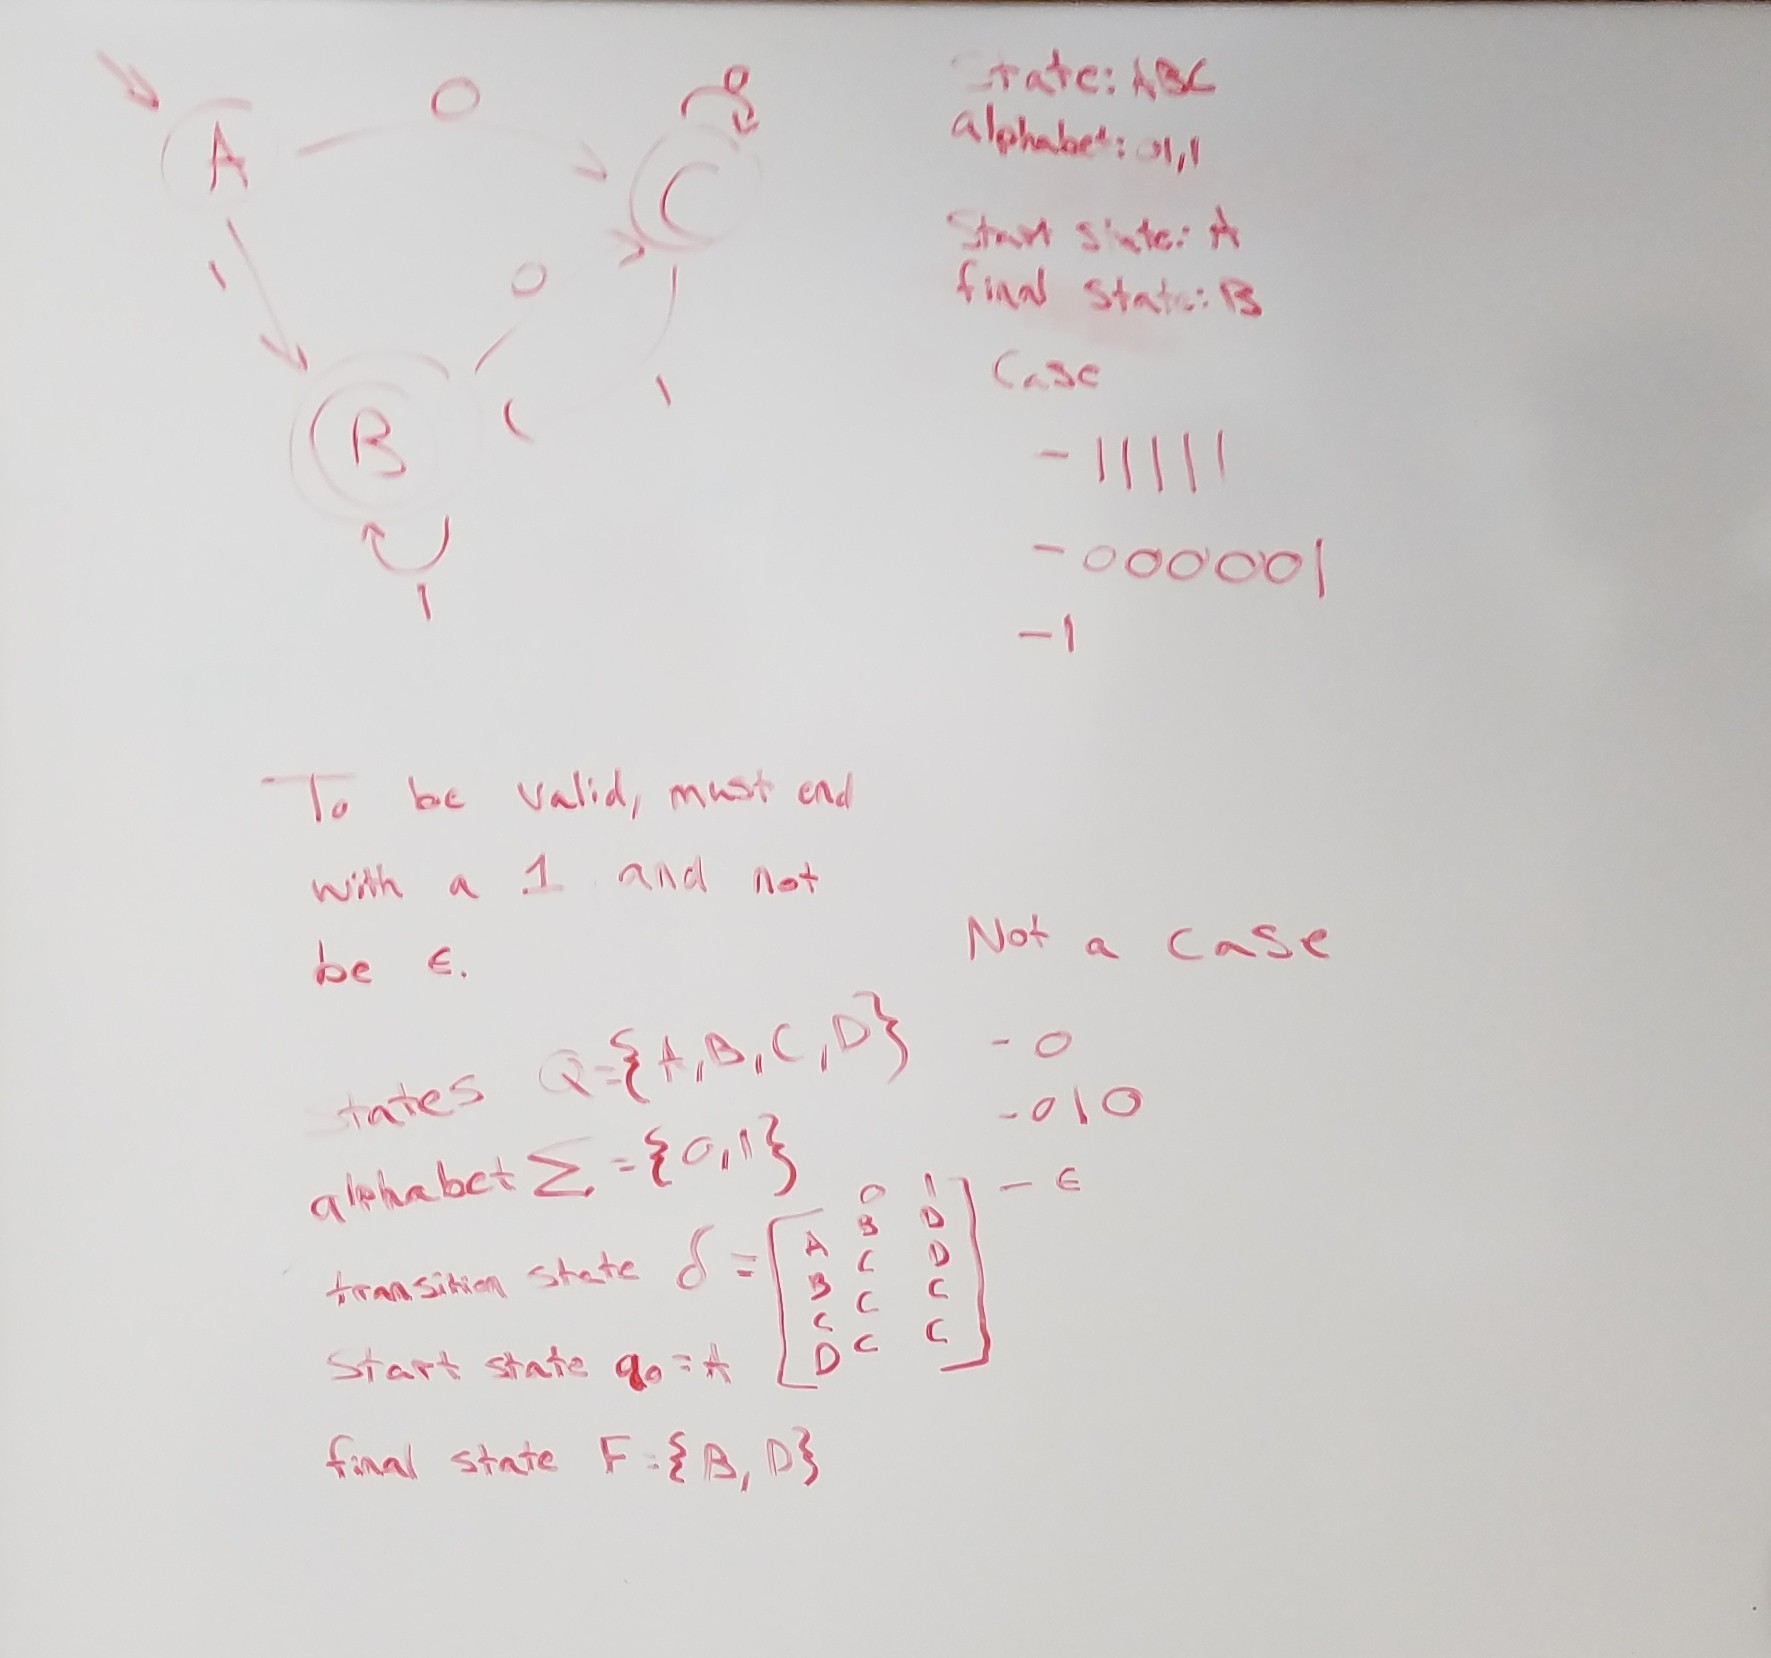 A
0
0
C
1
0
B
1
1
State: ABC
alphabet: 01,1
Start state: A
final state: B
Case
- 11111
- 000001
- 1
To be valid, must end
with a 1 and not
be ϵ.
Not a case
- 0
- 010
- ϵ
states Q={A,B,C,D}
alphabet Σ={0,1}
transition state δ =
0 1
A B D
B C D
C C C
D C C
Start state q₀=A
final state F={B, D}